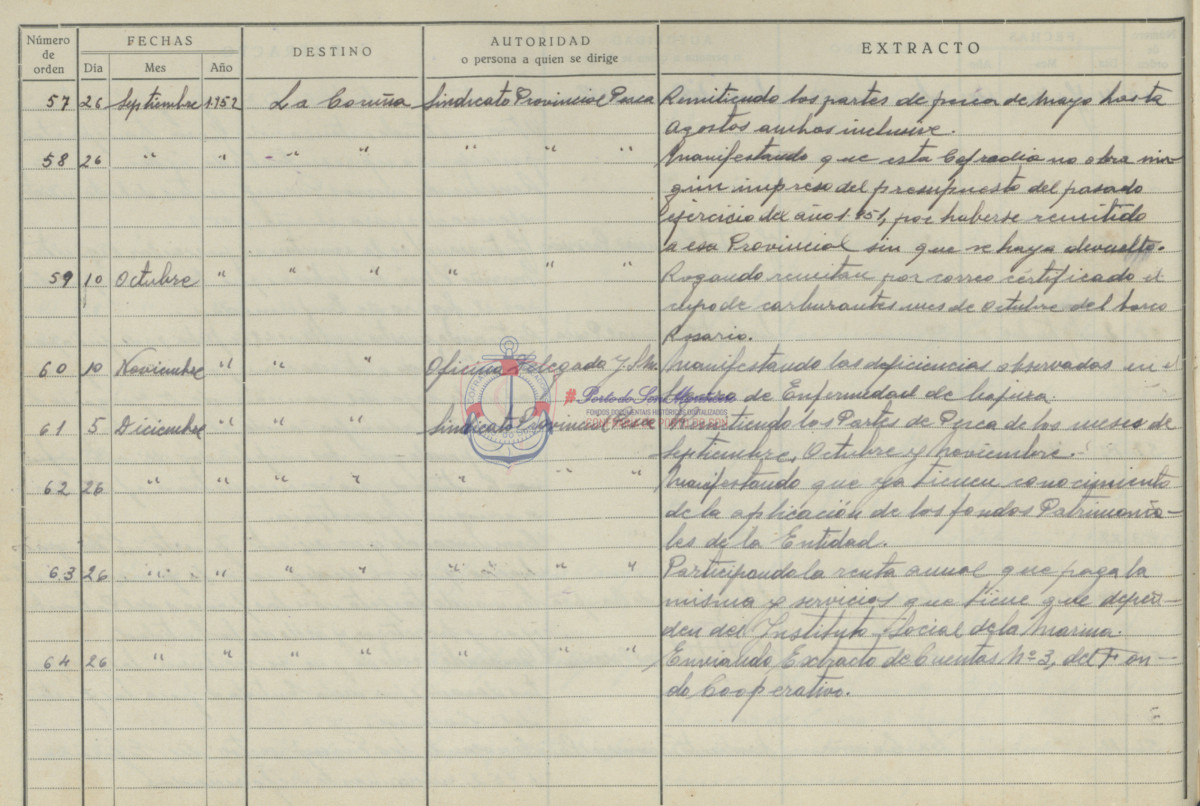 Número de orden
FECHAS
Dia Mes Año
DESTINO
AUTORIDAD
o persona a quien se dirige
EXTRACTO
57 26 Septiembre 1.952 La Coruña Sindicato Provincial Pesca Remitiendo los partes de pesca de Mayo hasta
Agostos ambos inclusive.
58 26 " " " " " " " Manifestando que esta Cofradia no obra nin-
gún impreso del presupuesto del pasado
ejercicio del año 1.951, por haberse remitido
a esa Provincial sin que se haya devuelto.
59 10 Octubre " " " " " " Rogando remitan por correo certificado el
cupo de carburantes mes de Octubre del barco
Rosario.
60 10 Noviembre " " " Oficina Delegada Manifestando las deficiencias observadas en el
de Enfermedad de
61 5 Diciembre " " " Sindicato Provincial Pesca Remitiendo los Partes de Pesca de los meses de
Septiembre, Octubre y Noviembre.
62 26 " " " " " " " Manifestando que ya tienen conocimiento
de la aplicación de los fondos Patrimonia-
les de la Entidad.
63 26 " " " " " " " " Participando la renta anual que paga la
misma y servicios que tiene que depen-
den del Instituto Social de la Marina.
64 26 " " " " " " " Enviando Extracto de Cuentas Nº 3, del Fon-
do Cooperativo.
#Porto do Son
FONDOS DOCUMENTAIS HISTÓRICOS DIGITALIZADOS